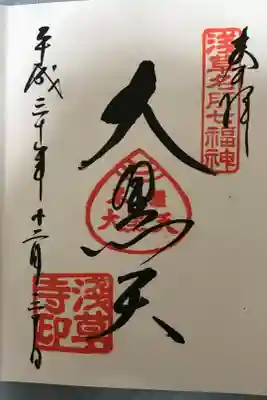 奉拝
浅草名所七福神
大黒天
浅草
寺印
平成三十年十二月三十日